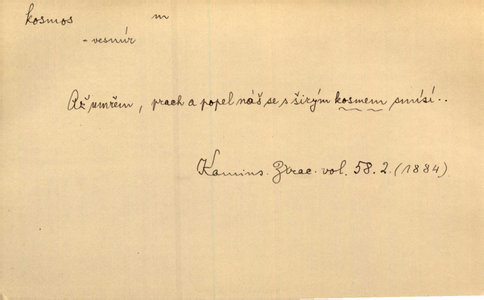 kosmos m
- vesmír
Až umřem, prach a popel náš se s širým kosmem smísí..
Kamins. Ztrac. vol. 58. 2. (1884)